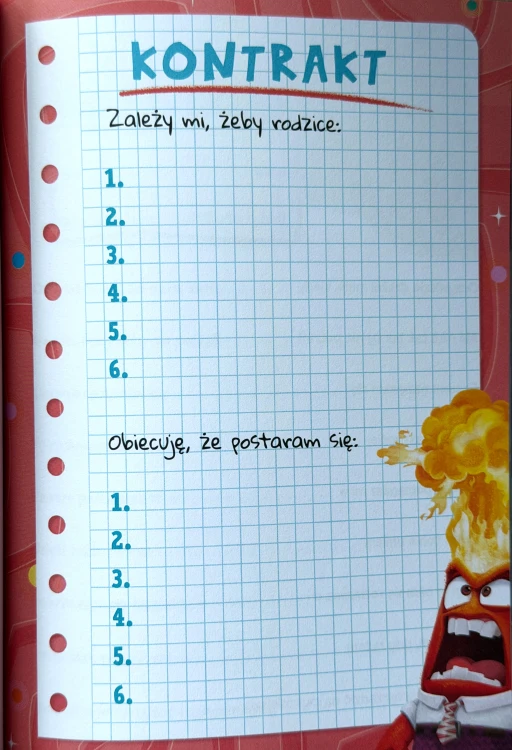 KONTRAKT
Zależy mi, żeby rodzice:
1.
2.
3.
4.
5.
6.
Obiecuję, że postaram się:
1.
2.
3.
4.
5.
6.